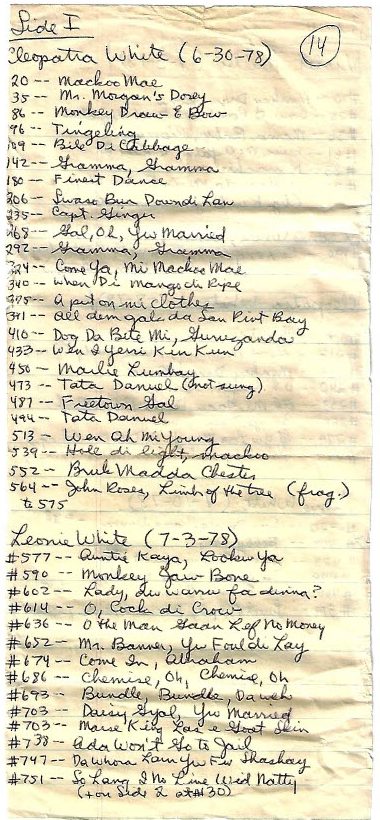 Side I
14
Cleopatra White (6-30-78)
20 -- Mackoo Mae
35 -- Mr. Morgan's Dorey
86 -- Monkey Draw E Bow
96 -- Tingeling
109 -- Bile Di Cabbage
142 -- Gramma, Gramma
180 -- Finest Dance
206 -- Swaso Bun Downdi Lan
235 -- Capt. Ginger
268 -- Gal, Oh, Yu Married
292 -- Gramma, Gramma
324 -- Come Ya, Mi Mackoo Mae
340 -- When Di Mango di Ripe
375 -- A put on mi clothes
391 -- All dem gals da San Piut Bay
410 -- Dog Da Bite Mi,
433 -- Wen I Yerri Kin Kun
450 -- Mailie Lumbay
473 -- Tata Danuel (not sung)
487 -- Freetown Gal
494 -- Tata Danuel
513 -- Wen Ah Mi Young
539 -- Hole di light, Mackoo
552 -- Bruk Madda Chester
564 -- John Roses, Limb of the tree (frag.)
to 575
Leonie White (7-3-78)
#577 -- Auntie Kaya, Lookin Ya
#590 -- Monkey Jaw Bone
#602 -- Lady, yu wanw fa dinna?
#614 -- O, Cocke di Crow
#636 -- O the Man Gaan Lef No Money
#652 -- Mr. Banner, Yu Foul di Lay
#674 -- Come In, Abraham
#686 -- Chemise, Oh, Chemise, Oh
#693 -- Bundle, Bundle, Da weh
#703 -- Daisy Gyal, Yu Married
#703 -- Maise King Las e Goat Skin
#738 -- Ada Won't Go to Jail
#747 -- Da whofa Lam Yu Fu Shashay
#751 -- So Lang I No Line Wid Natty
(+ on Side 2 at #130)